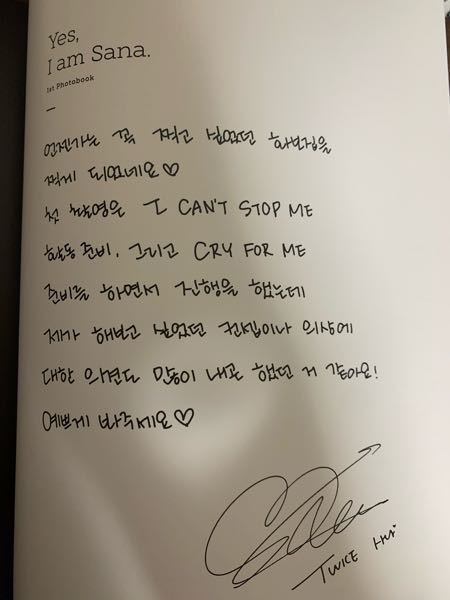 Yes,
I am Sana.
1st Photobook
언젠가는 꼭 찍고 싶었던 화보집을
찍게 되었네요♡
첫 촬영은 I CAN'T STOP ME
활동 준비, 그리고 CRY FOR ME
준비를 하면서 진행을 했는데
제가 해보고 싶었던 컨셉이나 의상에
대한 의견도 많이 내곤 했던 거 같아요!
예쁘게 봐주세요♡
TWICE 사나